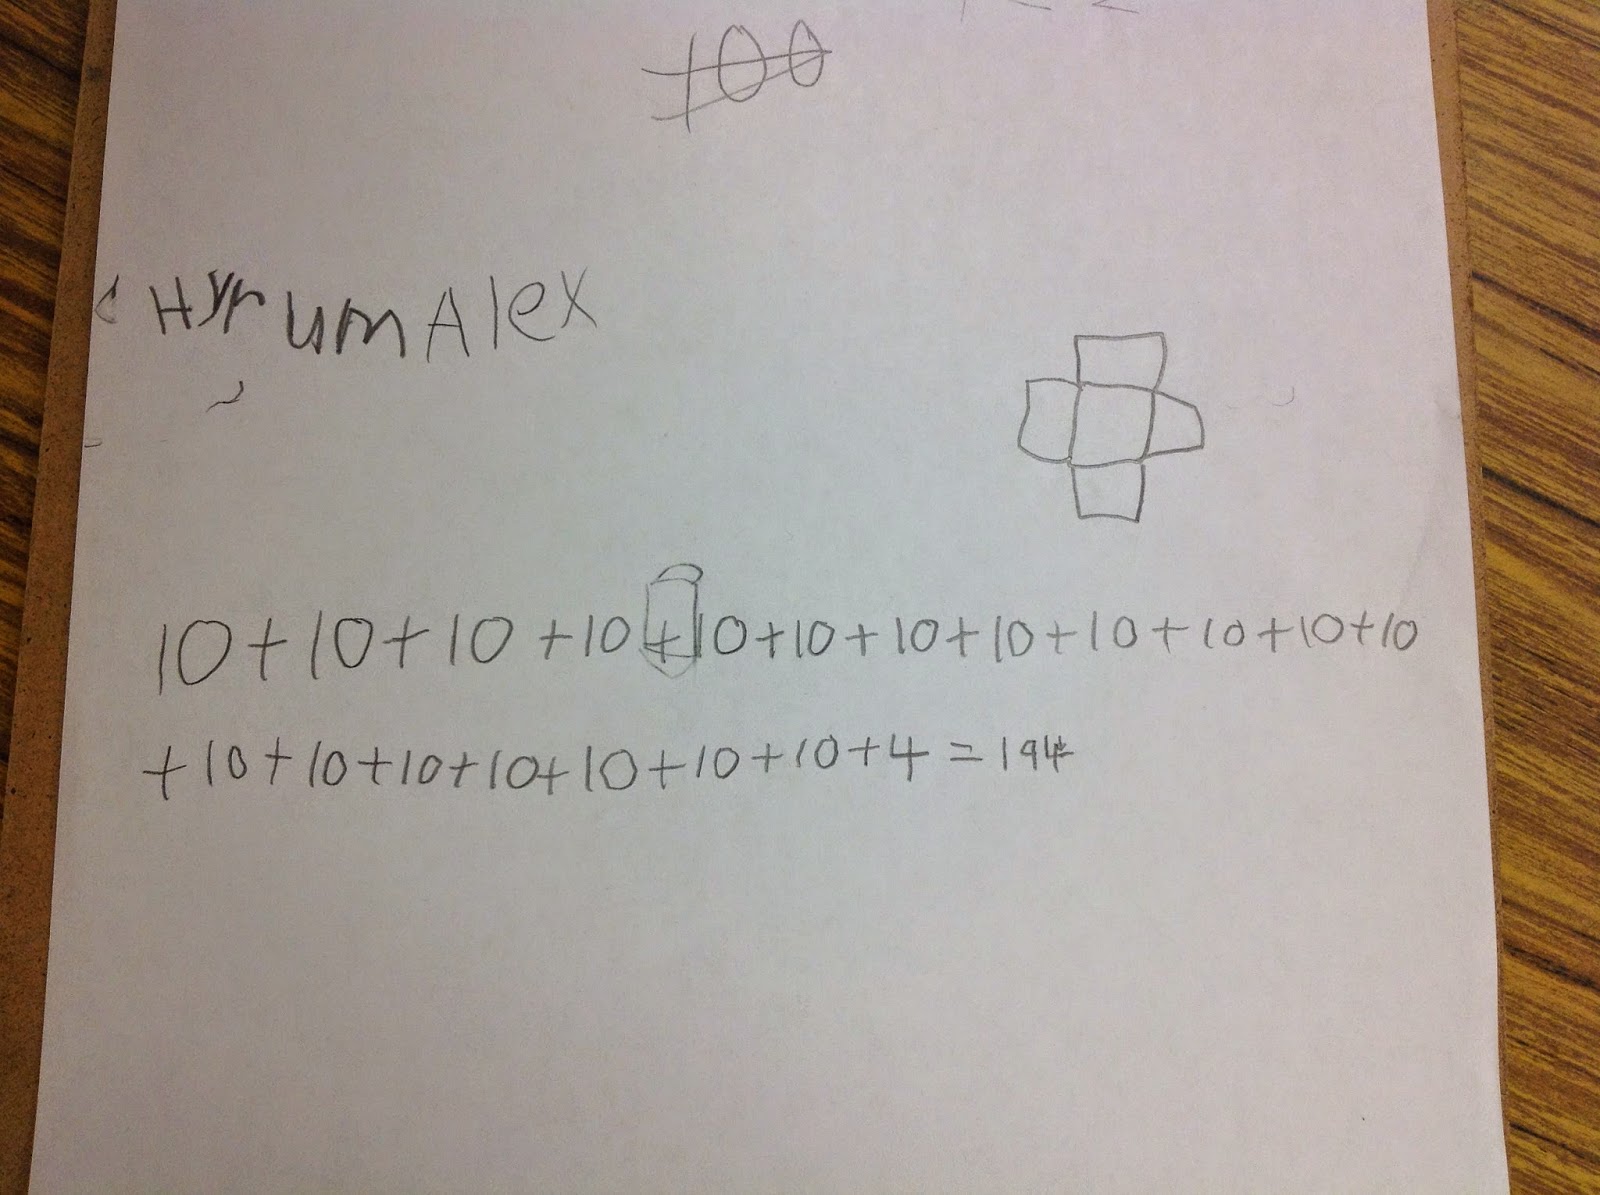 100
Hyrum Alex
10+10+10+10+10+10+10+10+10+10+10+10
+10+10+10+10+10+10+10+4=194